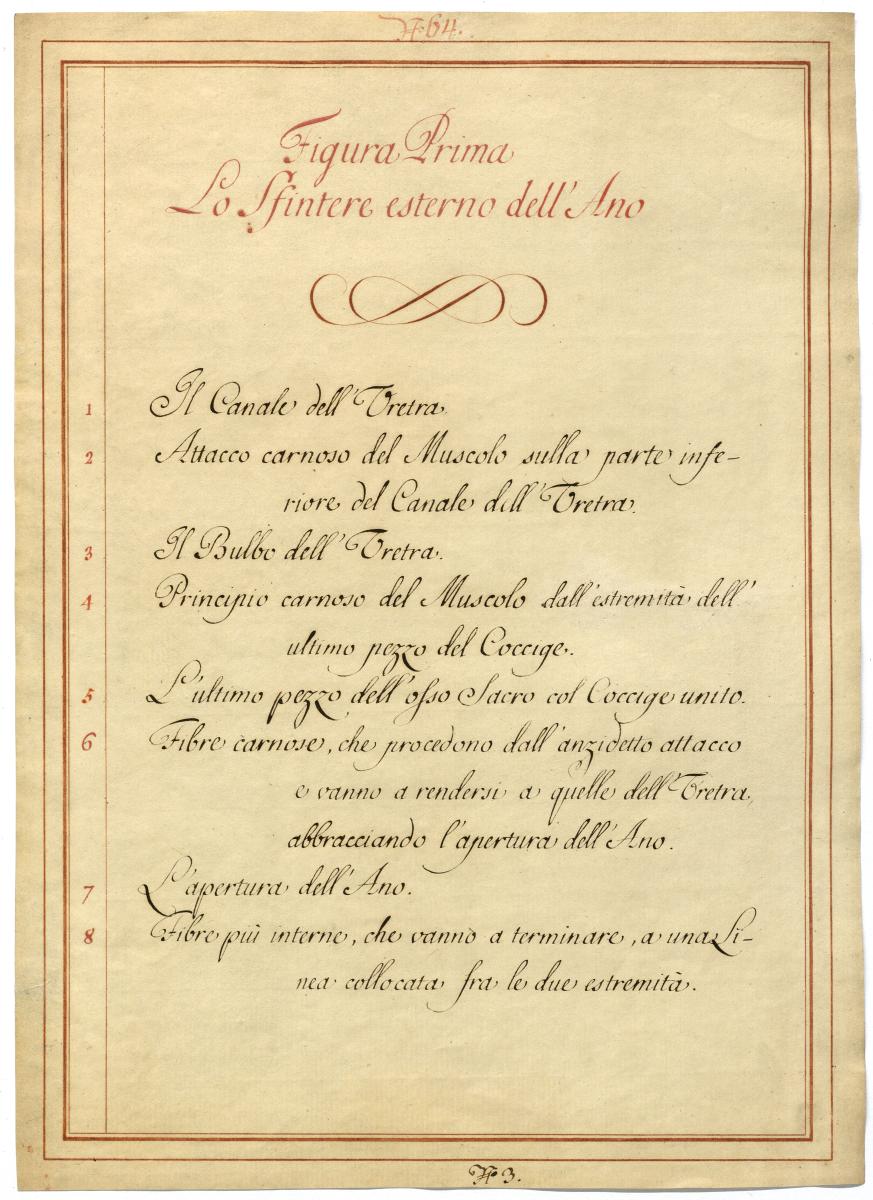 N. 64.
Figura Prima
Lo Sfintere esterno dell' Ano
1 Il Canale dell' Uretra.
2 Attacco carnoso del Muscolo sulla parte infe-
riore del Canale dell' Uretra.
3 Il Bulbo dell' Uretra.
4 Principio carnoso del Muscolo dall' estremità dell'
ultimo pezzo del Coccige.
5 L' ultimo pezzo dell' osso Sacro col Coccige unito.
6 Fibre carnose, che procedono dall' anzidetto attacco
e vanno a rendersi a quelle dell' Uretra,
abbracciando l' apertura dell' Ano.
7 L' apertura dell' Ano.
8 Fibre più interne, che vanno a terminare, a una Li-
nea collocata fra le due estremità.
N. 3.